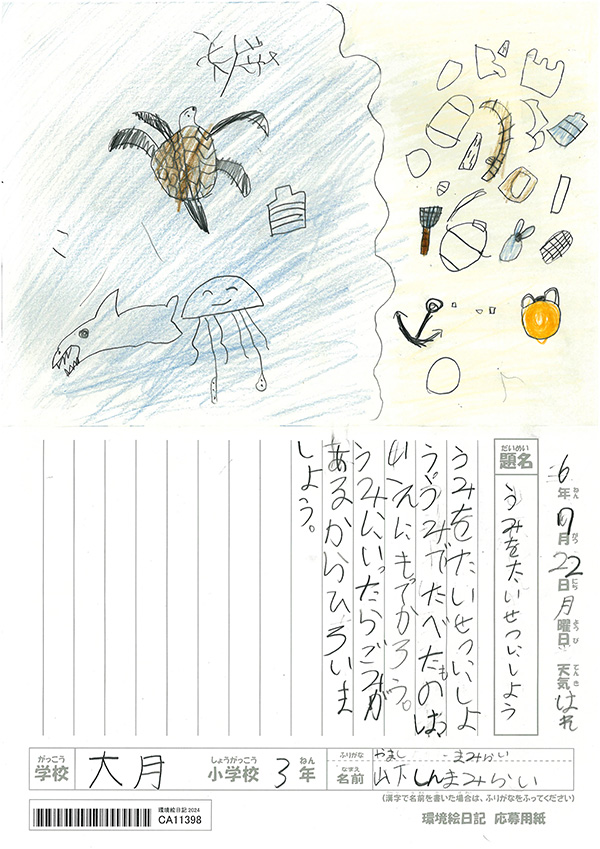 6年7月22日月曜日 天気はれ
ねん がつ にち ようび てんき
だいめい
題名
うみをたいせつにしよう
うみをたいせつにしよ
う。うみでたべたものは
いえにもってかろう。
うみにいったらごみが
あるからひろいま
しよう。
がっこう
学校
大月
しょうがっこう
小学校
3
ねん
年
ふりがな
やまし まみらい
なまえ
名前
山下しんまみらい
(漢字で名前を書いた場合は、ふりがなをふってください)
環境絵日記 2024
CA11398
環境絵日記 応募用紙